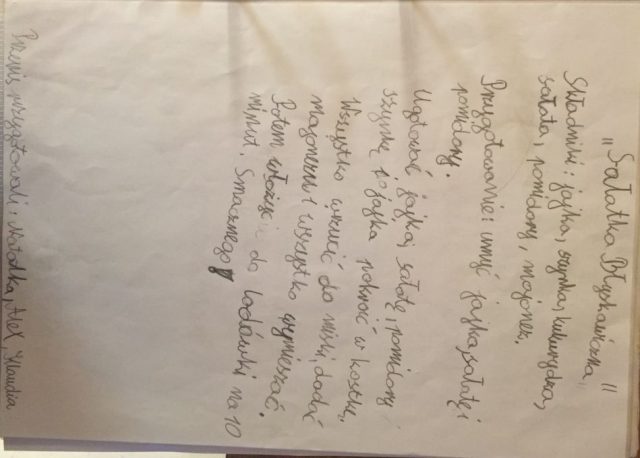 "Sałatka Błyskawiczna"
Składniki: jajka, szynka, kukurydza,
sałata, pomidory, majonez.
Przygotowanie: umyć jajka, sałatę i
pomidory.
Ugotować jajka, sałatę, pomidory
szynkę i jajka pokroić w kostkę.
Wszystko wrzucić do miski, dodać
majonezu i wszystko wymieszać.
Potem włożyć do lodówki na 10
minut. Smacznego
Przepis przygotowali: Natalka, Alex, Klaudia